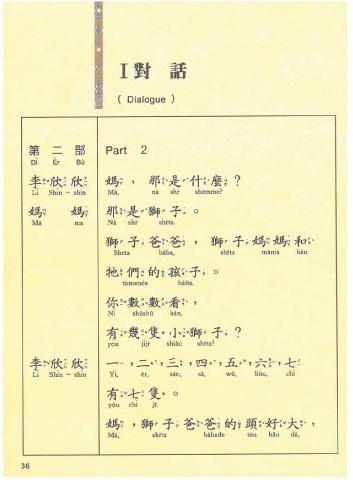 I 對 話
( Dialogue )
第 二 部 Part 2
Dì Èr Bù
李欣欣 媽，那是什麼？
Lǐ Shīn-shīn Mā, nà shř shémme?
媽 媽 那是獅子。
Mā ma Nà shř shřtz.
獅子爸爸，獅子媽媽和
Shřtz bàba, shřtz māma hàn
牠們的孩子。
tāmende háitz.
你數數看，
Nǐ shǔshǔ kàn,
有幾隻小獅子？
yǒu jǐjř shiǎo shřtz?
李欣欣 一，二，三，四，五，六，七
Lǐ Shīn-shīn Yī, èr, sān, sà, wǔ, lìou, chī
有七隻。
yǒu chī jř.
媽，獅子爸爸的頭好大，
Mā, shřtz bàbade tóu hǎu dà,
36